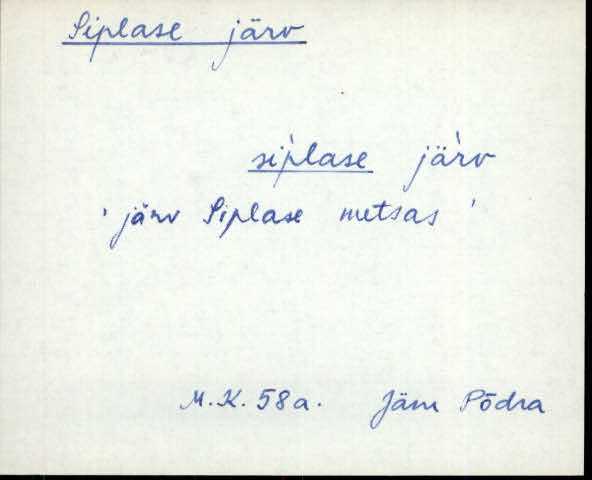 Siplase järv
si̇̀plase jä̀rv
' järv Siplase metsas '
M.K. 58a. Jäm Põdra